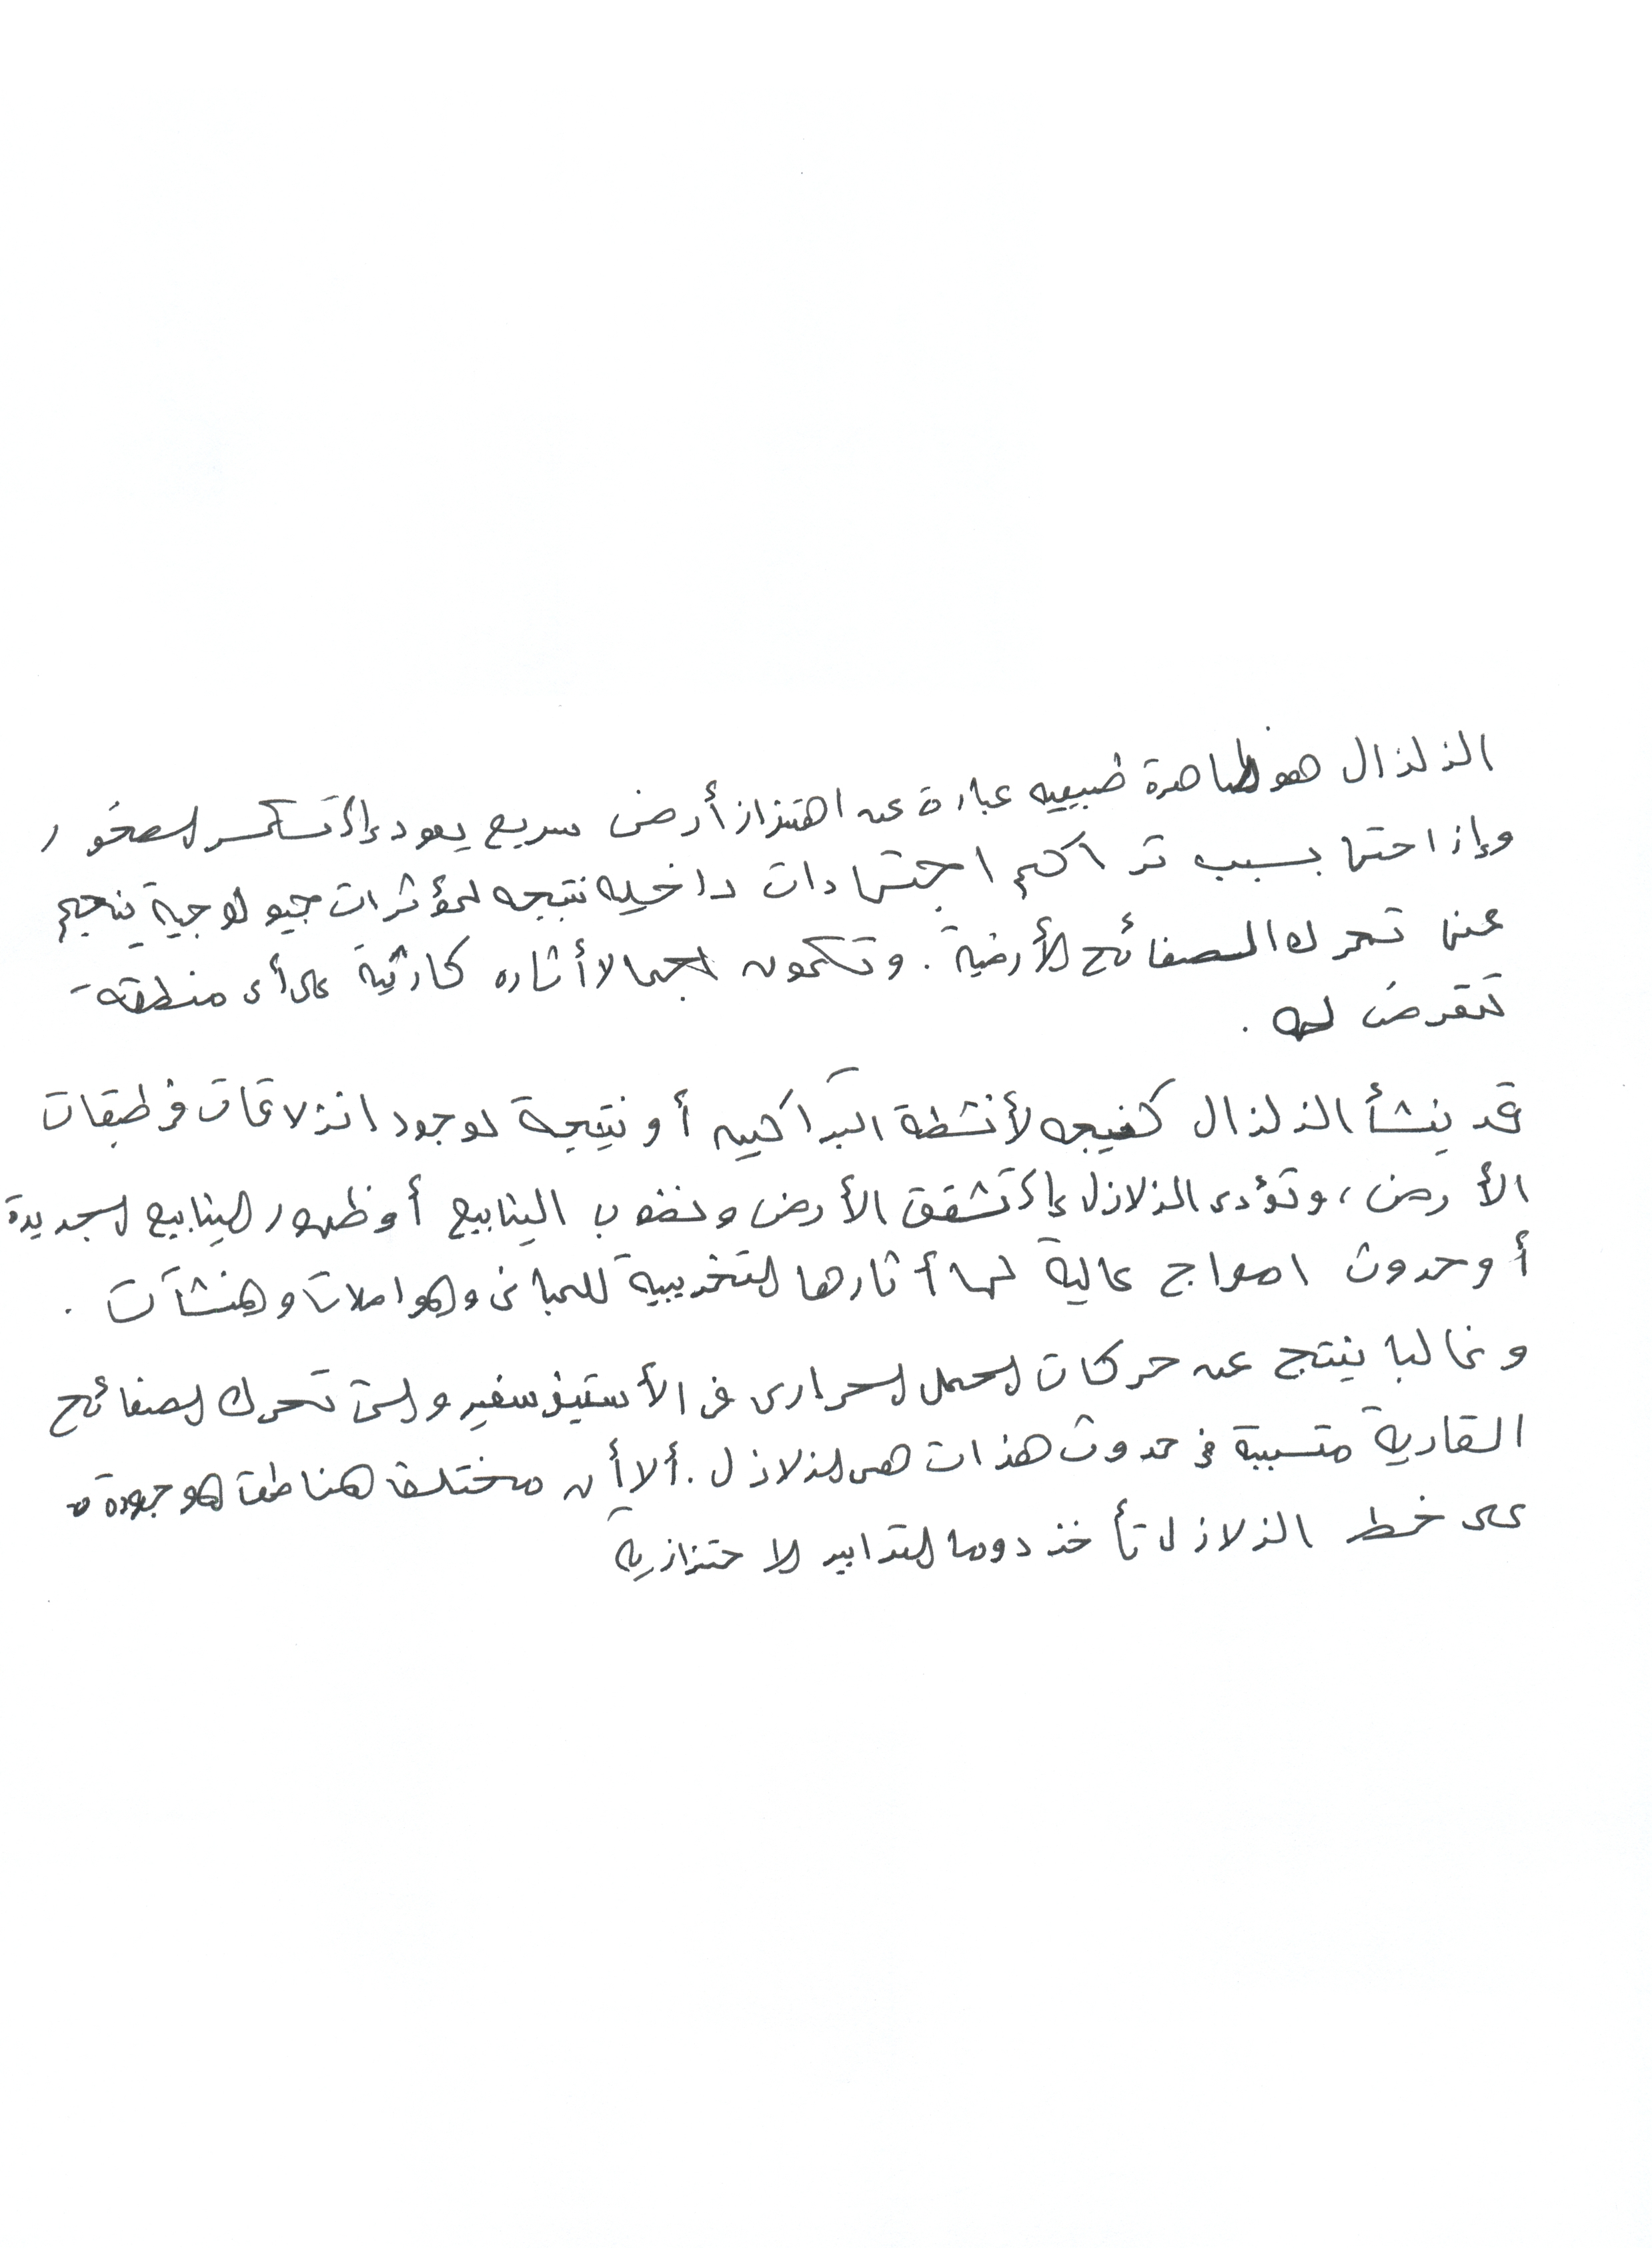 الزلزال هو ظاهرة طبيعيه عبارة عن اهتزاز أرضى سريع يعود إلى تكسر الصخور
وإزاحتها بسبب تراكم اجتهادات داخليه نتيجه لمؤثرات جيولوجية ينجم
عنها تحرك الصفائح الأرضية . وتكون اجمالا أثاره كارثية على أى منطقة
تتعرض له .
قد ينشأ الزلزال كنتيجه لأنشطة البراكين أو نتيجة لوجود انزلاقات في طبقات
الأرض ، وتؤدى الزلازل إلى تشقق الأرض ونضوب الينابيع أو ظهور الينابيع الجديدة
أو حدوث امواج عالية لها أثارها التخريبية للمبانى والمواصلات والمنشآت .
وغالبا ينتج عن حركات الحمل الحرارى فى الأستينوسفير والتى تحرك الصفائح
القارية متسببة فى حدوث هذات هى الزلازل . ألا أن مختلف المناطق الموجودة
على خط الزلازل تأخذ دوما التدابير الاحتزازية